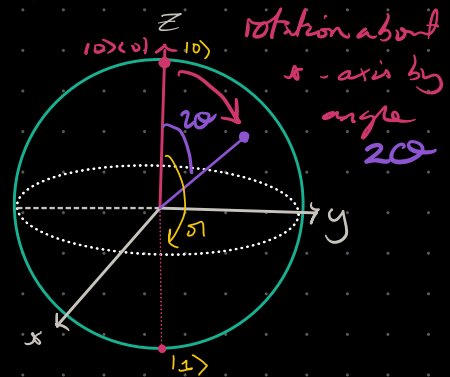 z
|0><0| |0>
rotation about
x-axis by
angle
2θ
2θ
π
y
x
|1>